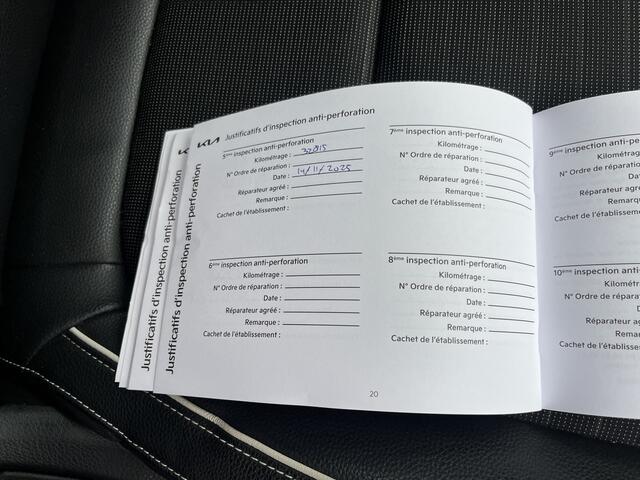 KIA Justificatifs d'inspection anti-perforation
5ème inspection anti-perforation
Kilométrage : 32815
N° Ordre de réparation :
Date : 14/11/2025
Réparateur agréé :
Remarque :
Cachet de l'établissement :
6ème inspection anti-perforation
Kilométrage :
N° Ordre de réparation :
Date :
Réparateur agréé :
Remarque :
Cachet de l'établissement :
7ème inspection anti-perforation
Kilométrage :
N° Ordre de réparation :
Date :
Réparateur agréé :
Remarque :
Cachet de l'établissement :
8ème inspection anti-perforation
Kilométrage :
N° Ordre de réparation :
Date :
Réparateur agréé :
Remarque :
Cachet de l'établissement :
20
9ème inspection anti
Kilométrag
N° Ordre de réparatio
Date
Réparateur agré
Remarqu
Cachet de l'établissemen
10ème inspection ant
Kilométra
N° Ordre de réparat
Da
Réparateur agr
Remar
Cachet de l'établisseme
KIA Justificatifs d'inspection anti-perforation
Justificatifs d'inspection anti-perforation